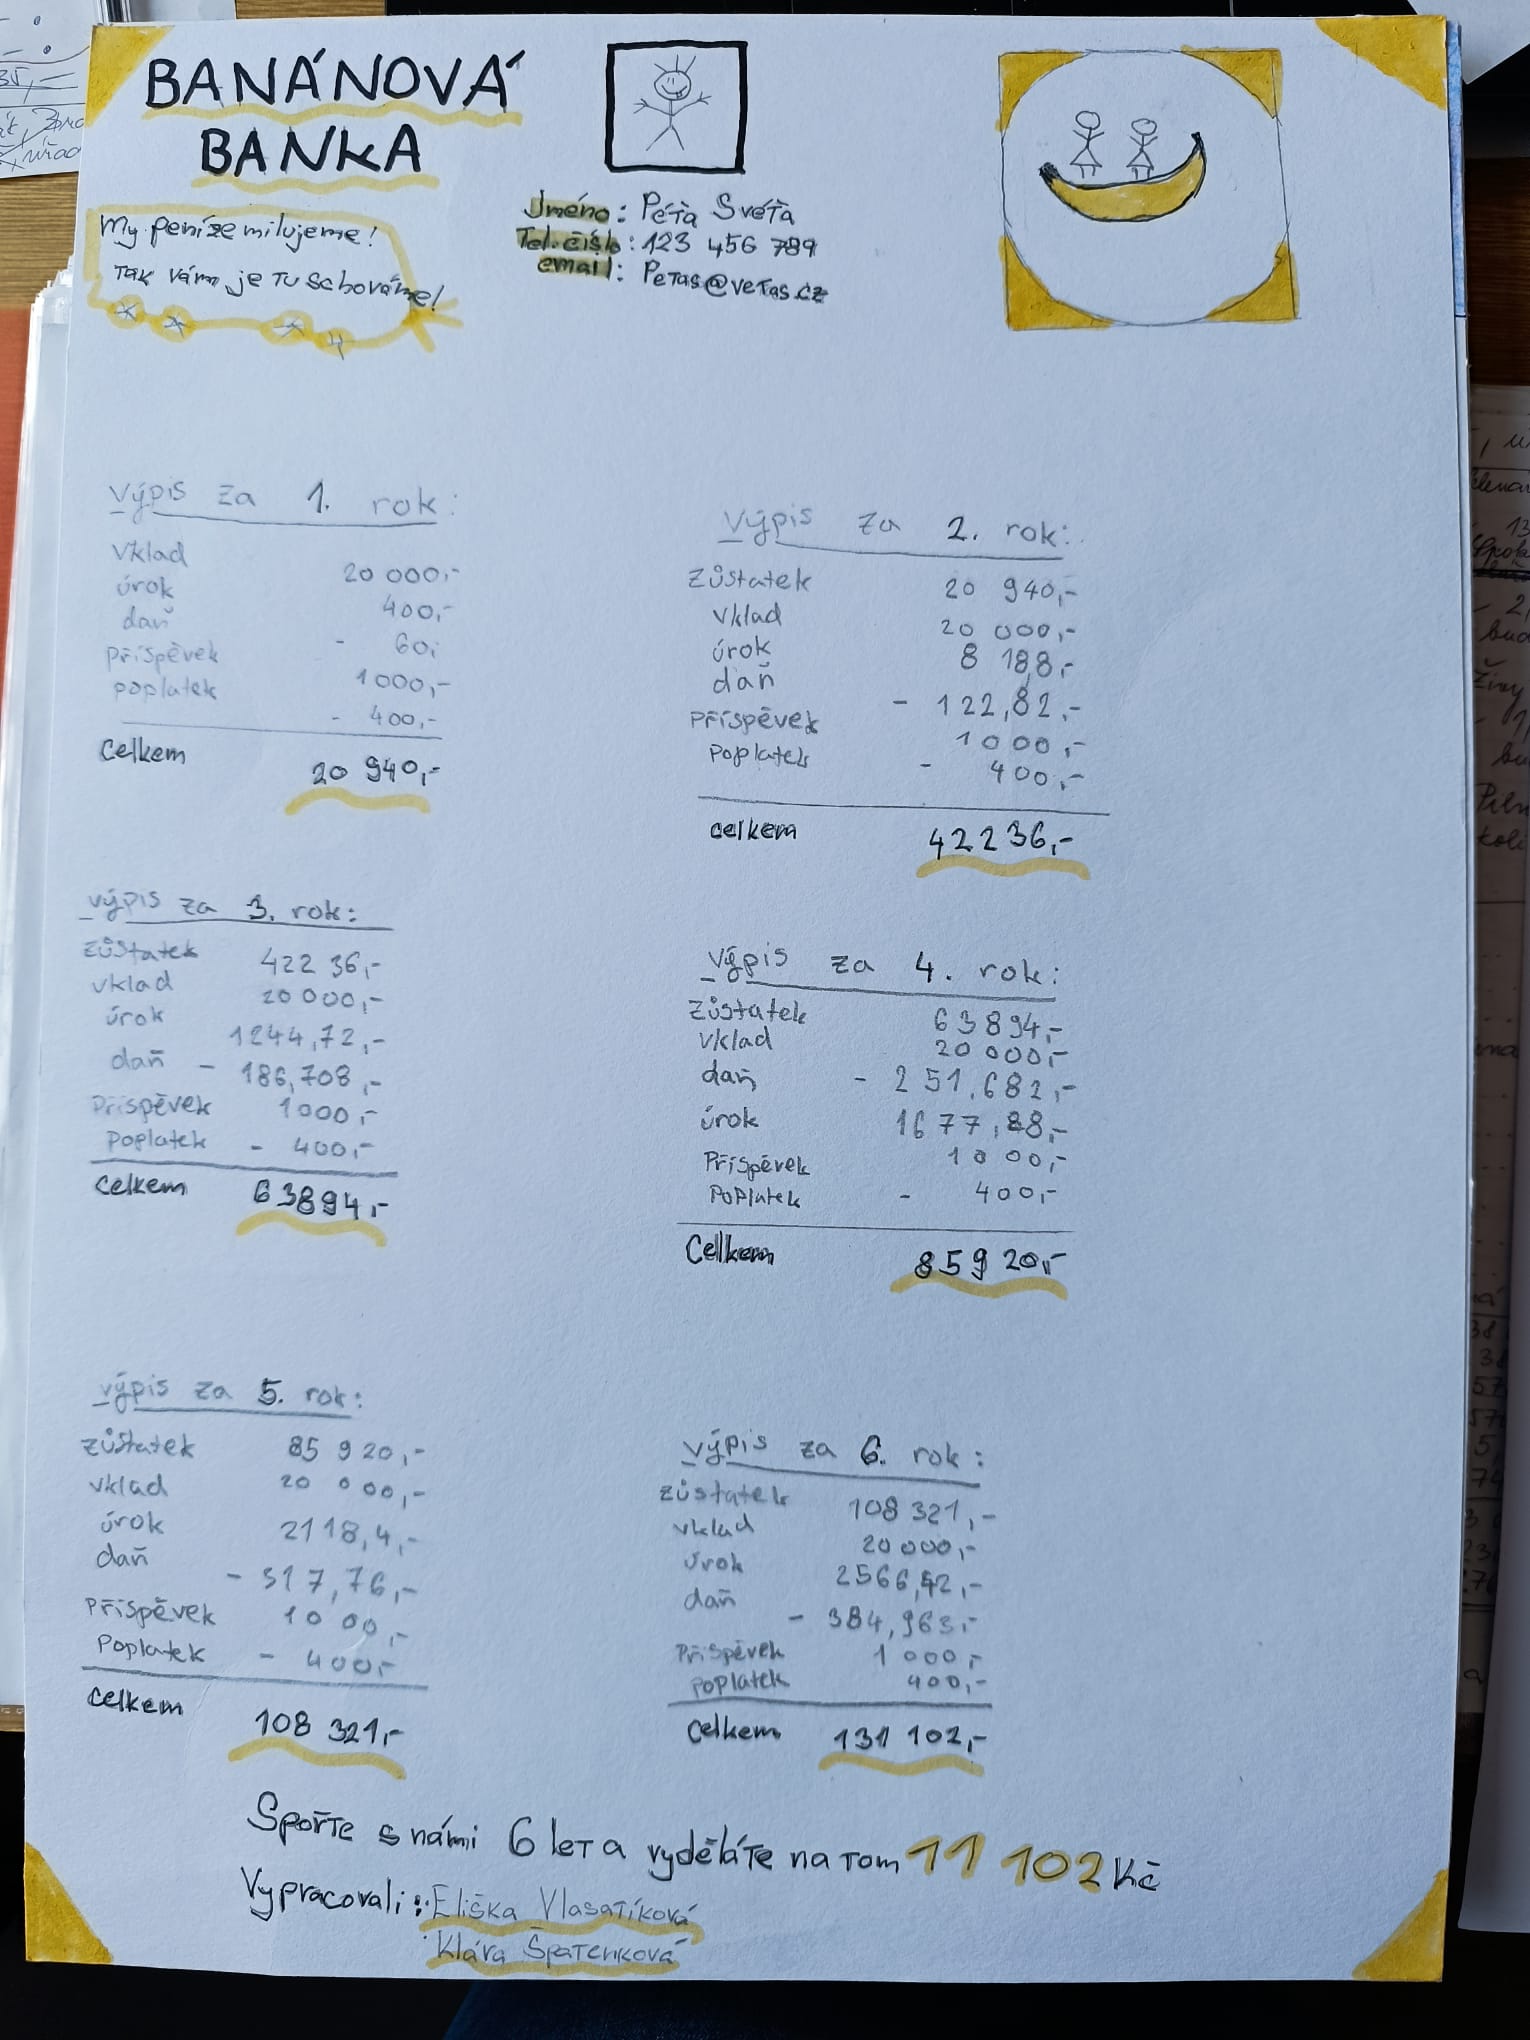 BANÁNOVÁ
BANKA
My peníze milujeme!
Tak vám je tu schováme!
Jméno: Péťa Švéťa
Tel. číslo: 123 456 789
email: Petas@vetas.cz
Výpis za 1. rok:
vklad 20 000,-
úrok 400,-
daň - 60,-
příspěvek 1000,-
poplatek - 400,-
Celkem 20 940,-
Výpis za 2. rok:
Zůstatek 20 940,-
vklad 20 000,-
úrok 8 188,-
daň - 122,82,-
Příspěvek 1000,-
Poplatek - 400,-
celkem 42236,-
Výpis za 3. rok:
Zůstatek 422 36,-
vklad 20 000,-
úrok 1244,72,-
daň - 186,708,-
Příspěvek 1000,-
Poplatek - 400,-
Celkem 63894,-
Výpis za 4. rok:
Zůstatek 63894,-
vklad 20 000,-
daň - 251,682,-
úrok 1677,88,-
Příspěvek 1000,-
Poplatek - 400,-
Celkem 859 20,-
Výpis za 5. rok:
Zůstatek 85 920,-
vklad 20 000,-
úrok 2118,4,-
daň - 317,76,-
Příspěvek 1000,-
Poplatek - 400,-
Celkem 108 321,-
Výpis za 6. rok:
Zůstatek 108 321,-
vklad 20 000,-
úrok 2566,42,-
daň - 384,963,-
Příspěvek 1 000,-
poplatek 400,-
Celkem 131 102,-
Spořte s námi 6 let a vyděláte na tom 11 102 Kč
Vypracovali: Eliška Vlasatíková
Klára Špatenková